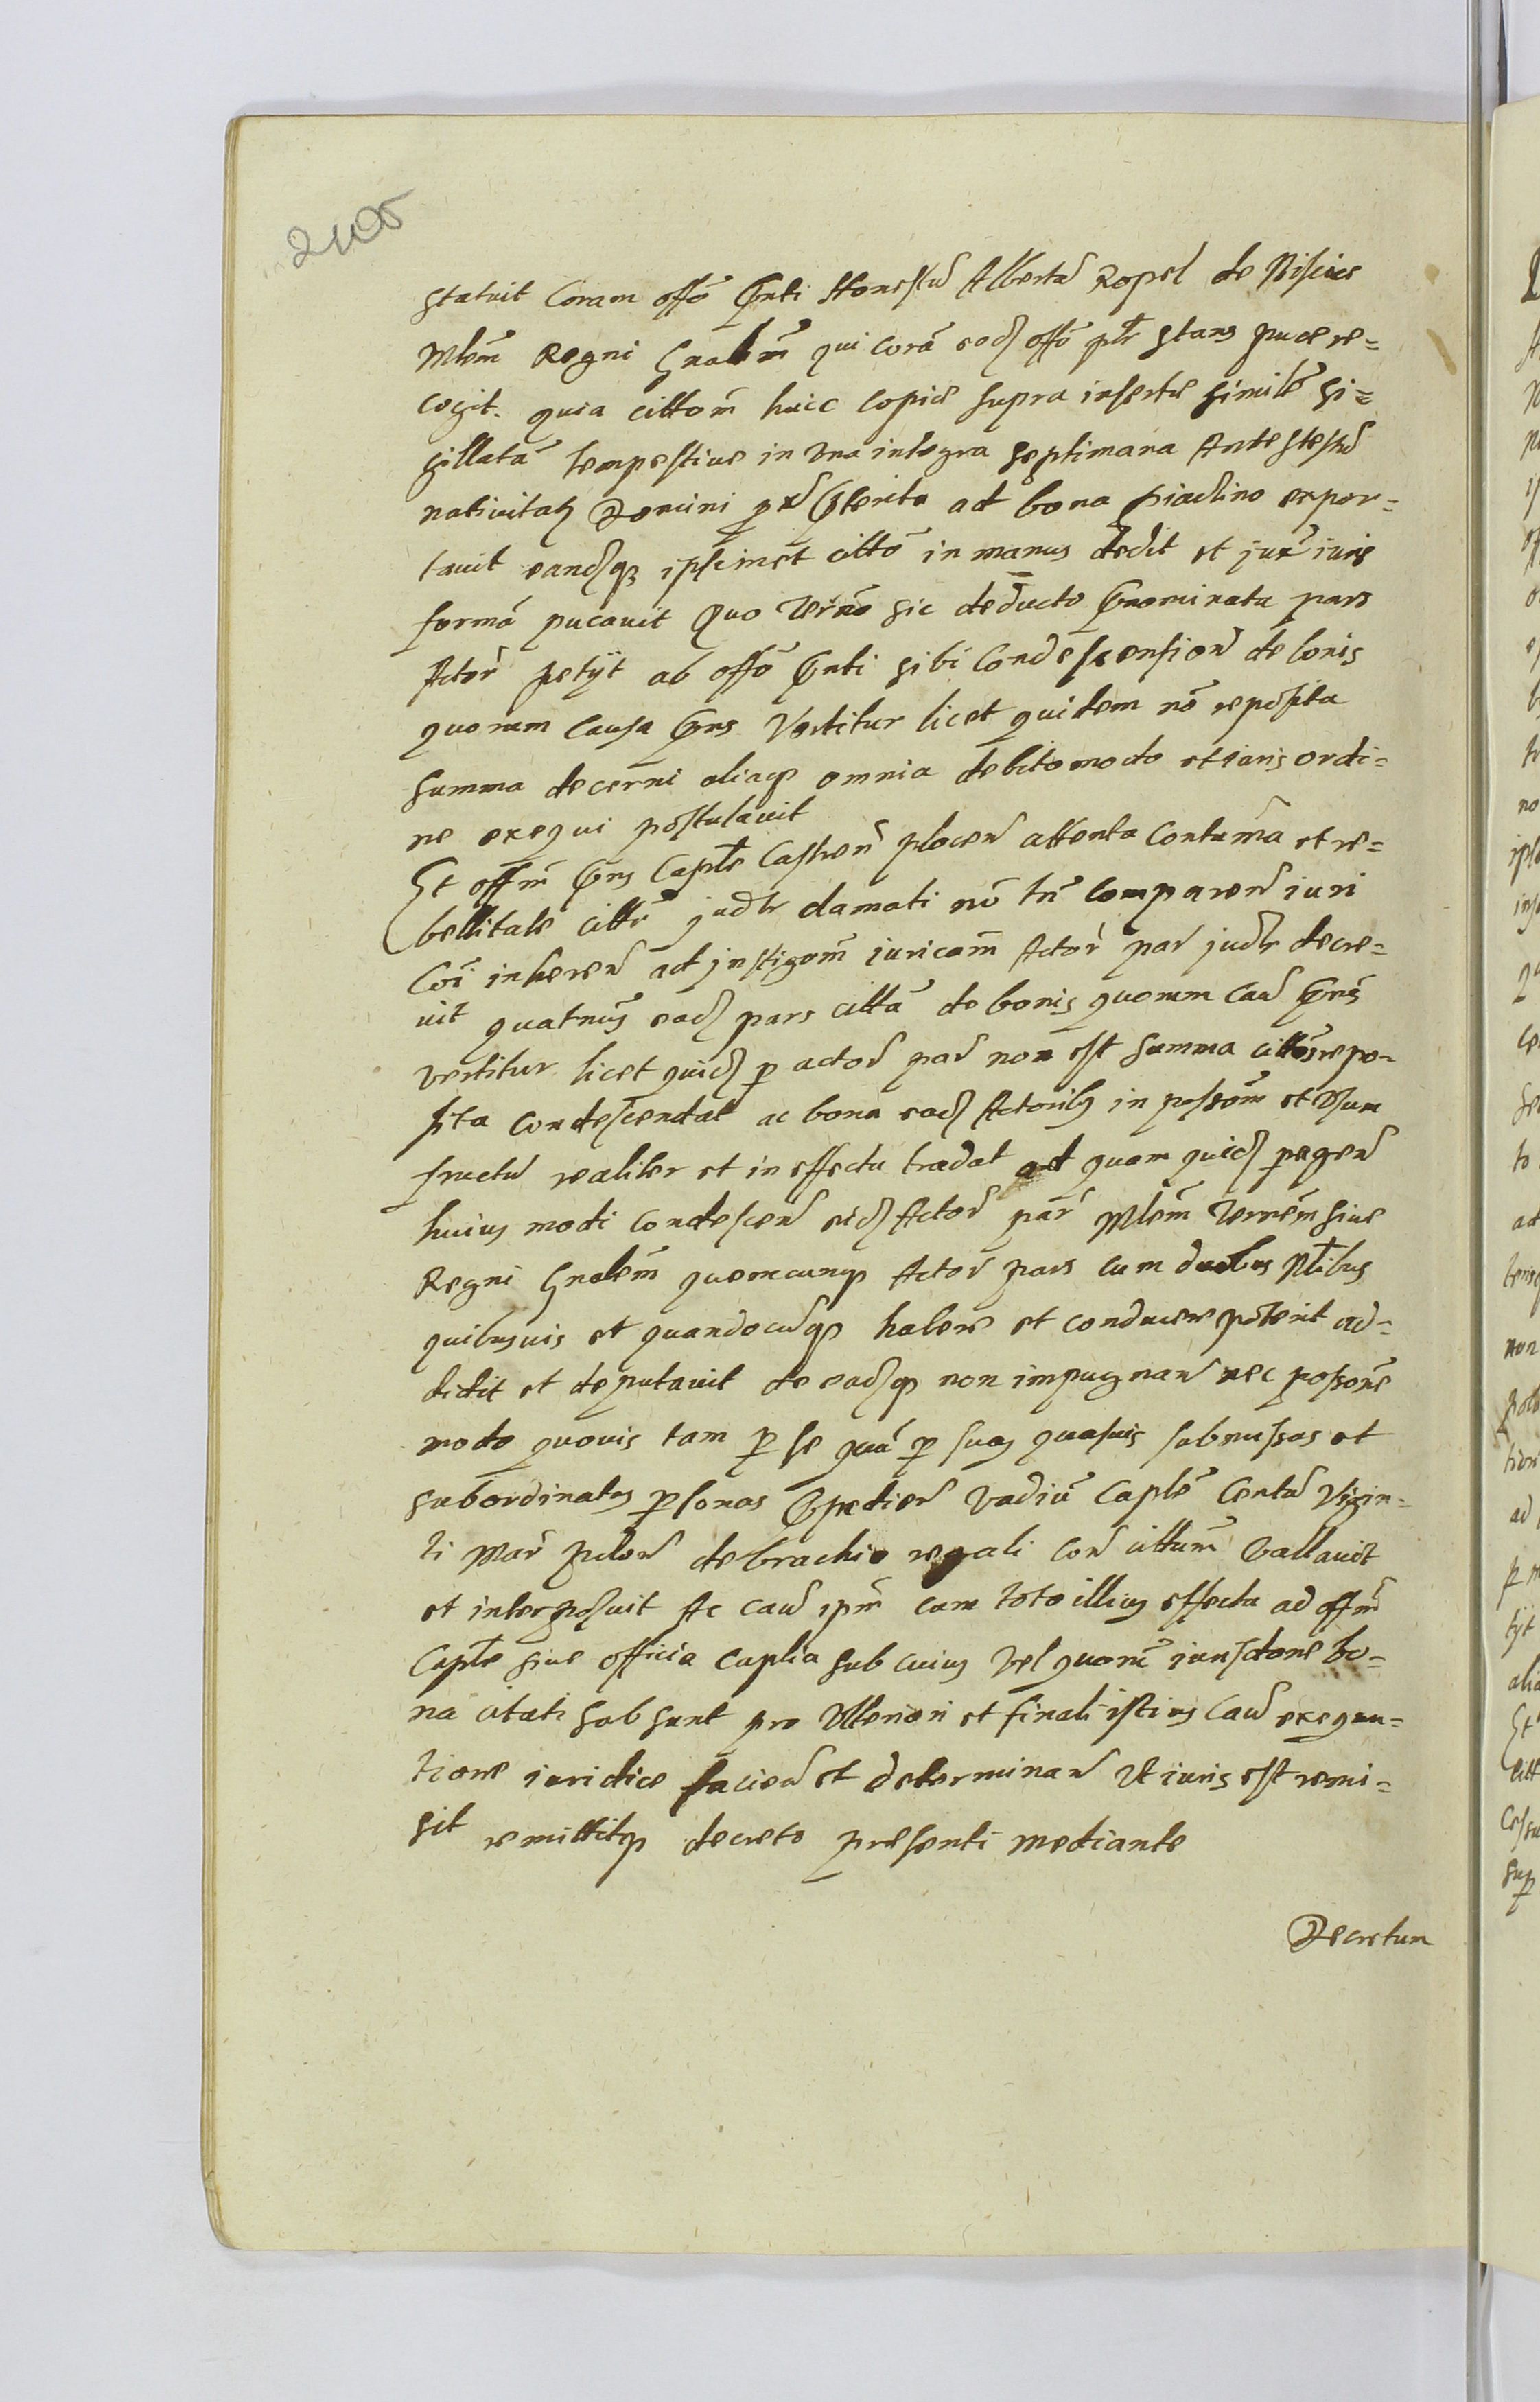 statuit Coram offo pnti Honestũ Albertũ Ropel de
Mlem Regni Gnalem qui corã eod offo plr stans puce re=
cogit. quia cittom huic copie supra inserte simile si=
gillatã tempestive in una integra septimana Ante festũ
nativitatis Domini px pterita ad bona piaclino expor=
tavit eandq ipsimet citto in manus dedit et jux iuris
formã pucavit Quo Termo sic deducto pnominata pars
Actor petyt ab offo pnti sibi Condescension de bonis
quorum Causa pns Vertitur licet quidem nõ reposita
Summa decerni aliaq omnia debito modo et iuris ordi=
ne exequi postulavit
Et offm pns Caple Castren placen attenta Contuma et re=
bellitate citti judlr clamati nõ tñ comparen iuri
Coi inheren ad instigom iuricam Actor par judlr decre=
vit quatnus ead pars citta de bonis quorum Cau pns
vertitur licet quid p actor par non est summa cittos repo=
sita condescendat ac bona ead Actoribus in possom et Usum
fructũ realiter et in effectu tradat ad quam quid peragen
huius modi condescen eid Actor par Mlem Terrem sive
Regni Gnalem quemcunq Actor pars cum duobus Nlibus
quibusvis et quandocunq habere et conducere poterit ad=
didit et deputavit de eadq non impugnan nec possone
modo quovis tam p se quã p suas quasvis submissas et
subordinatas psonas pedien Vadiũ Caple Centũ Vigin=
ti Mar pclon de brachio regali con cittum Vallavit
et interposuit Ac cau ipm cum toto illius effectu ad offm
Caple sive officia Caplia sub cuius vel quorũ iurisdone bo=
na citati subsunt pro Ulteriori et finali istius Cau exequu=
tione iuridice facien et determinan Ut iuris est remi=
sit remittitq decreto presenti mediante
Decretum